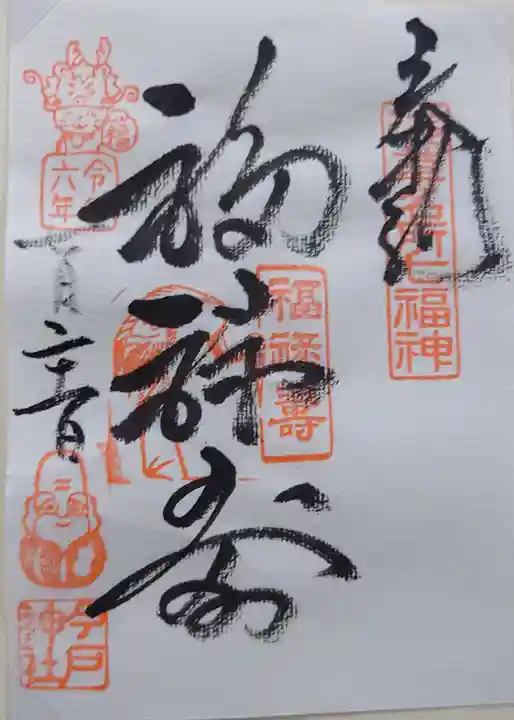 奉拝
七福神
福禄寿
福禄寿
福
令六年
今戸神社